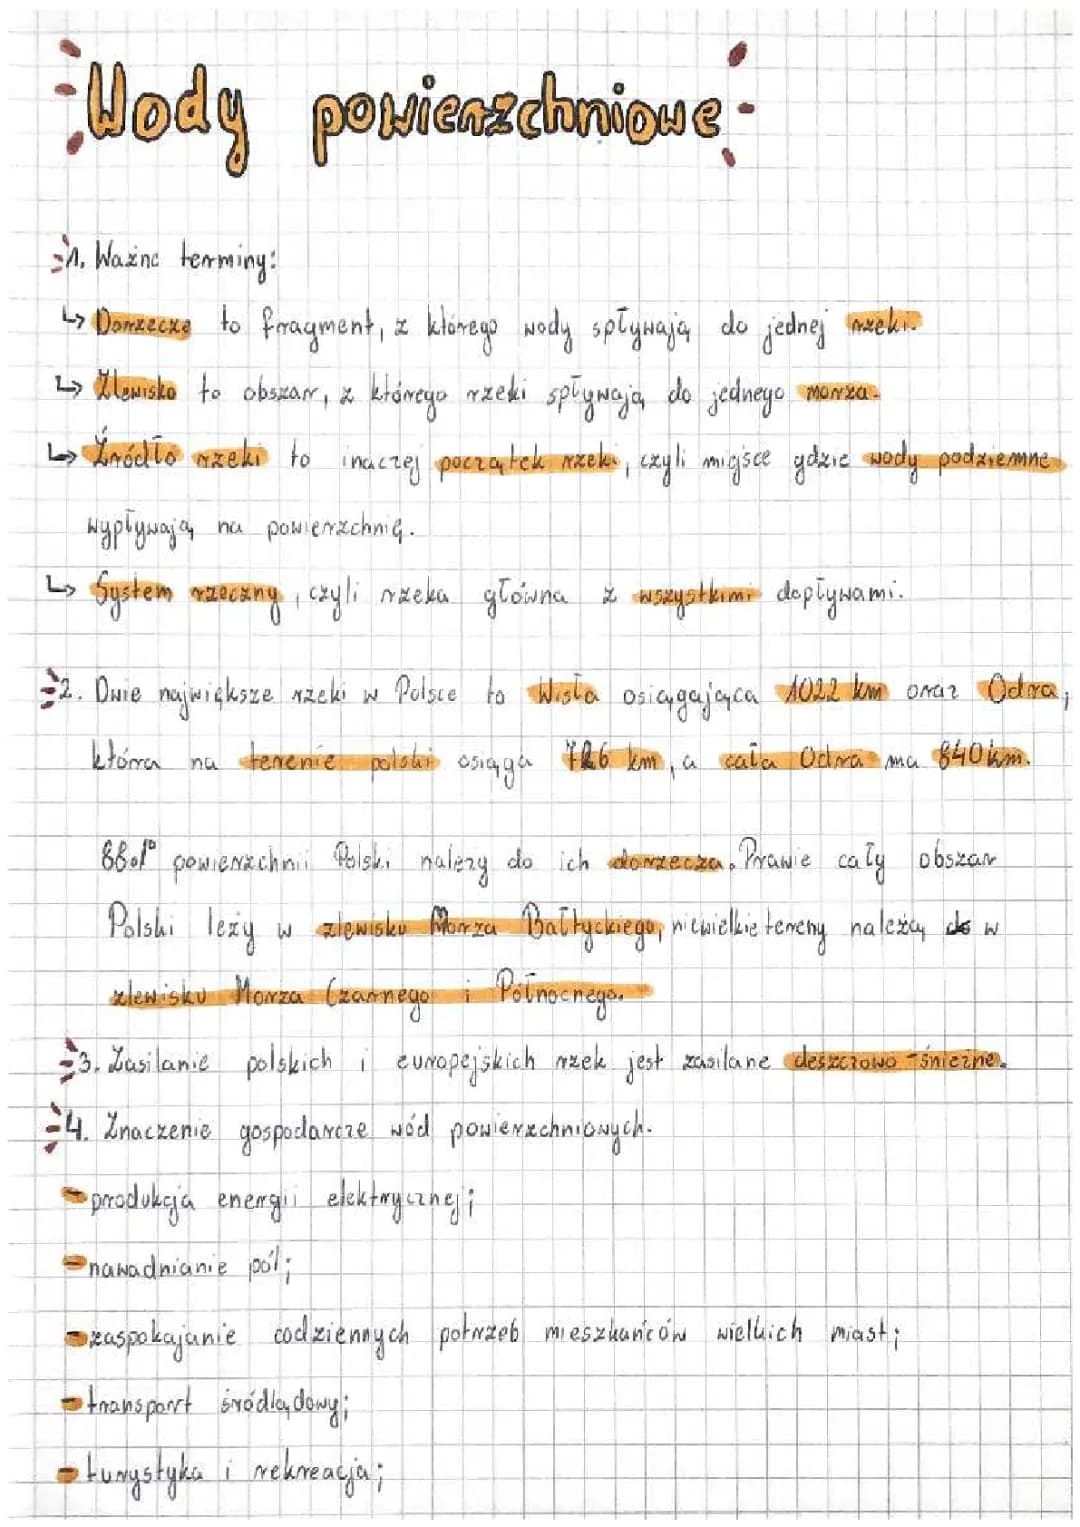 Wody powierzchniowe
1. Ważne terminy:
↳ Dorzecze to fragment, z którego wody spływają do jednej rzeki.
↳ Zlewisko to obszar, z którego rzeki spływają do jednego morza.
↳ Źródło rzeki to inaczej początek rzeki, czyli miejsce gdzie wody podziemne
wypływają na powierzchnię.
↳ System rzeczny, czyli rzeka główna z wszystkimi dopływami.
2. Dwie największe rzeki w Polsce to Wisła osiągająca 1022 km oraz Odra,
która na terenie polski osiąga 726 km, a cała Odra ma 840 km.
88% powierzchnii Polski należy do ich dorzecza. Prawie cały obszar
Polski leży w zlewisku Morza Bałtyckiego, niewielkie tereny należą w
zlewisku Morza Czarnego i Północnego.
3. Zasilanie polskich i europejskich rzek jest zasilane deszczowo-śnieżne.
4. Znaczenie gospodarcze wód powierzchniowych.
- produkcja energii elektrycznej;
- nawadnianie pól;
- zaspokajanie codziennych potrzeb mieszkańców wielkich miast;
- transport śródlądowy;
- turystyka i rekreacja;